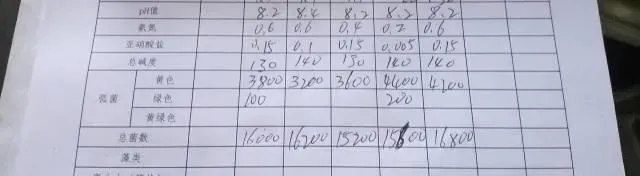 pH值 8.2 8.4 8.2 8.2 8.2
氨氮 0.6 0.6 0.4 0.2 0.6
亚硝酸盐 0.15 0.1 0.15 0.005 0.15
总碱度 130 140 130 140 140
弧菌 黄色 3800 3200 3600 4400 4200
绿色 100 200
黄绿色
总菌数 16000 16200 15200 15600 16800
藻类